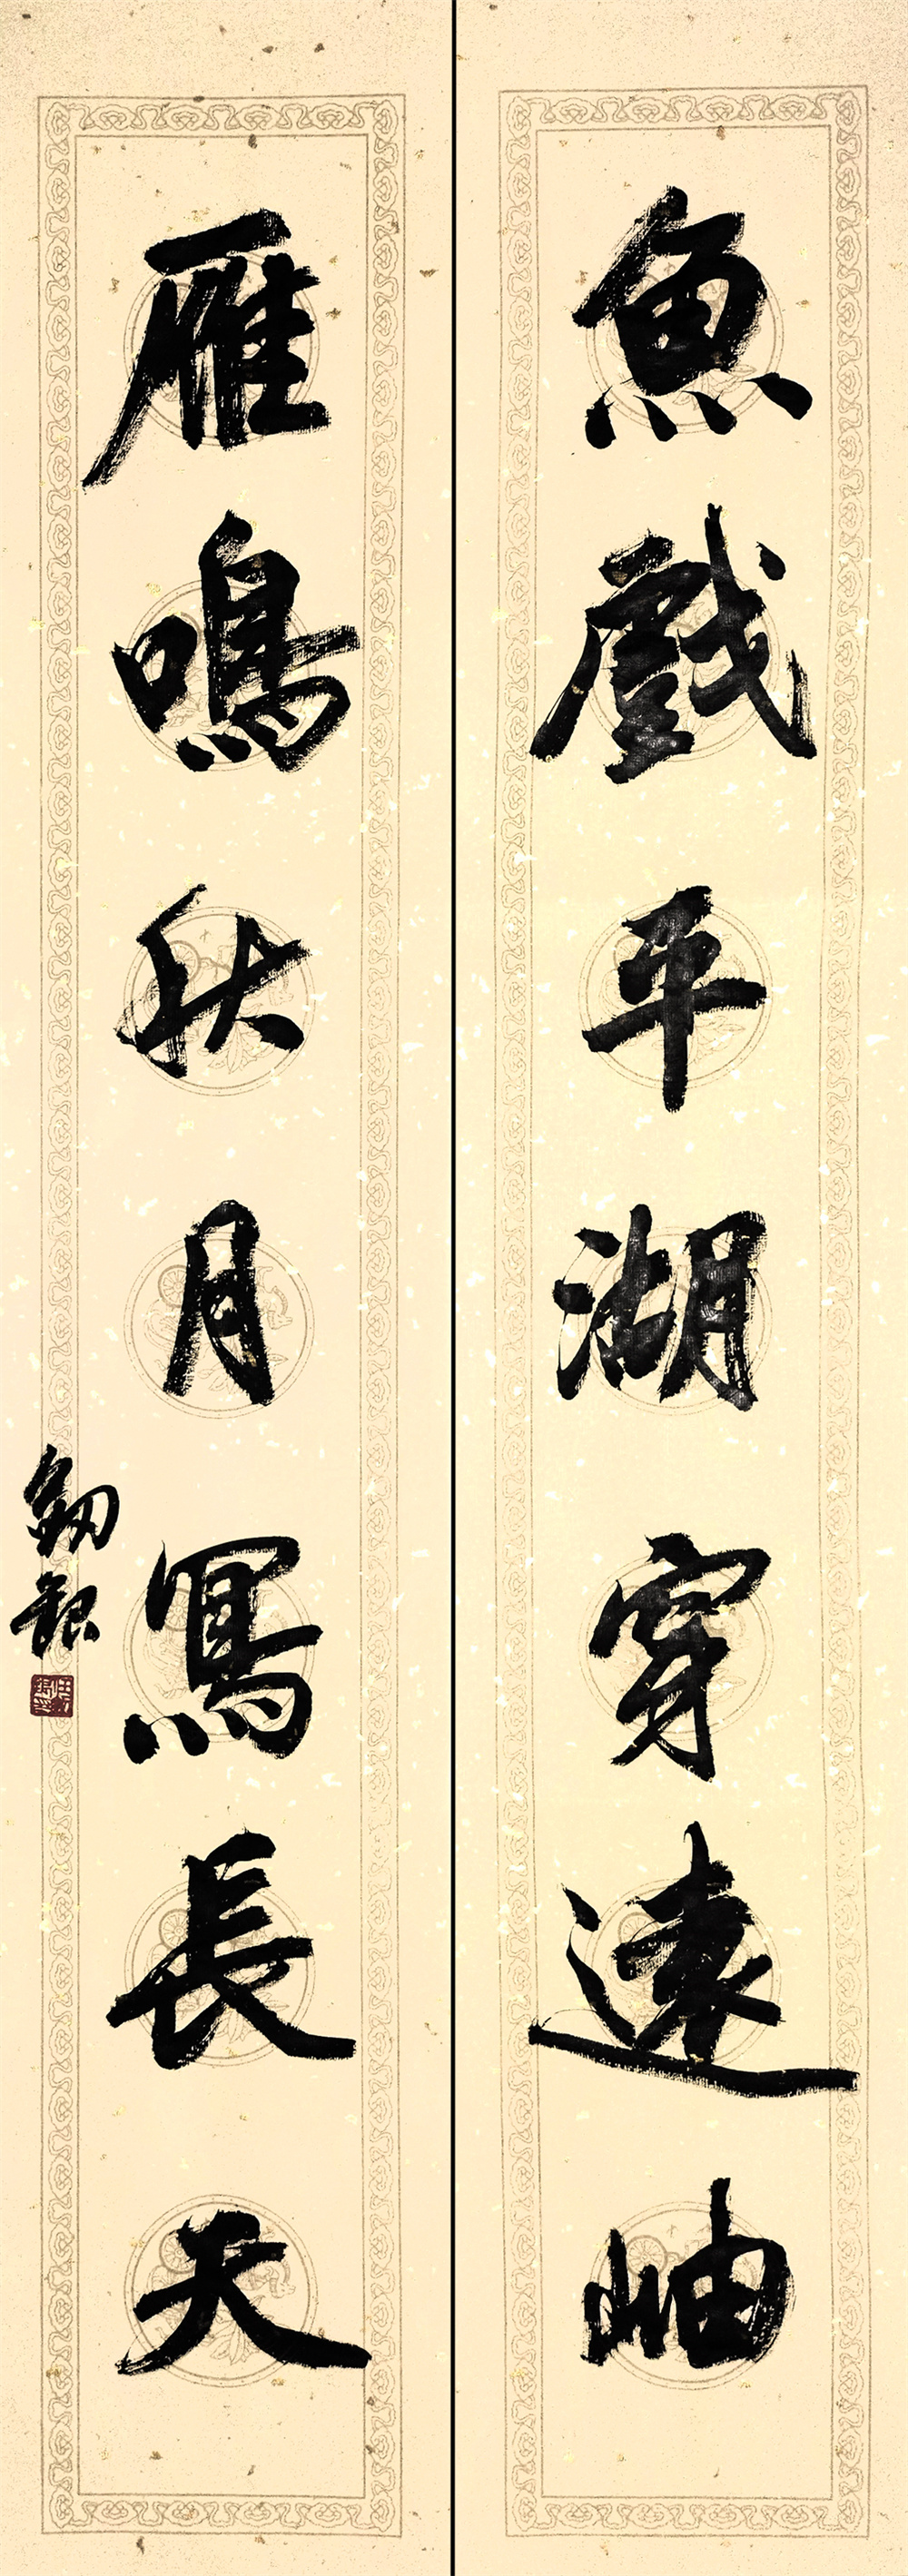 魚戲平湖穿遠岫
雁鳴秋月寫長天